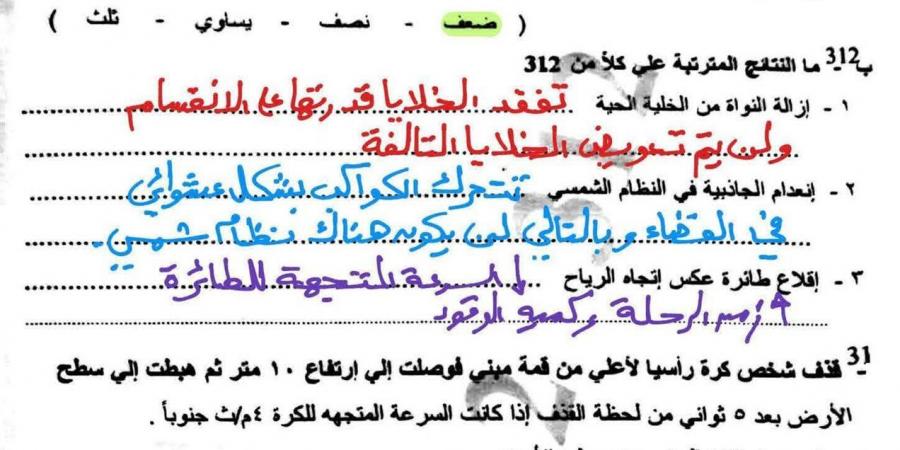 ( ضعف - نصف - يساوي - ثلث )
ب-312 ما النتائج المترتبة علي كلاً من 312
١ - إزالة النواة من الخلية الحية تفقد الخلايا قدرتها على الانقسام
ولن يتم تعويض الخلايا التالفة
٢ - إنعدام الجاذبية في النظام الشمسي تتحرك الكواكب بشكل عشوائي
في الفضاء وبالتالي لن يكون هناك نظام شمسي .
٣ - إقلاع طائرة عكس إتجاه الرياح ↓ السرعة المتجهة للطائرة
↑ زمن الرحلة وكمية الوقود
31- قذف شخص كرة رأسيا لأعلي من قمة مبني فوصلت إلي إرتفاع ١٠ متر ثم هبطت إلي سطح
الأرض بعد ٥ ثواني من لحظة القذف إذا كانت السرعة المتجهه للكرة ٤م/ث جنوباً .